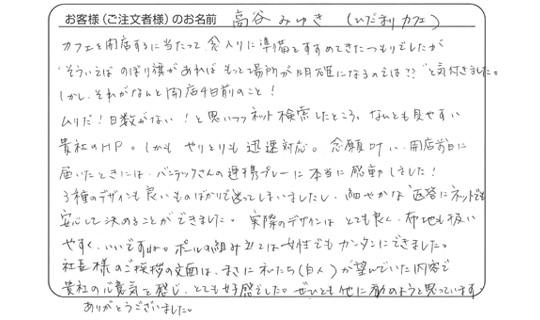 お客様(ご注文者様)のお名前 高谷みゆき (ひだまりカフェ)
カフェを開店するに当たって念入りに準備をすすめてきたつもりでしたが
"そういえばのぼり旗があればもっと場所が明確になるのでは??"と気付きました。
しかし、それがなんと開店4日前のこと!
ムリだ!日数がない!と思いつつネット検索したところ、なんとも見やすい
貴社のHP。しかもやりとりも迅速対応。念願叶い、開店前日に
届いたときには、バンテックさんの連携プレーに本当に感動しました!
3種のデザインも良いものばかりで迷ってしまいましたし、細やかな返答にネットでも
安心して決めることができました。実際のデザインはとても良く、布地も扱い
やすく、いいですね。ポールの組み立ては女性でもカンタンにできました。
社長様のご挨拶の文面は、まさに私たち(白人)が望んでいた内容で
貴社の心意気を感じ、とても好感でした。ぜひとも他に勧めようと思っています。
ありがとうございました。